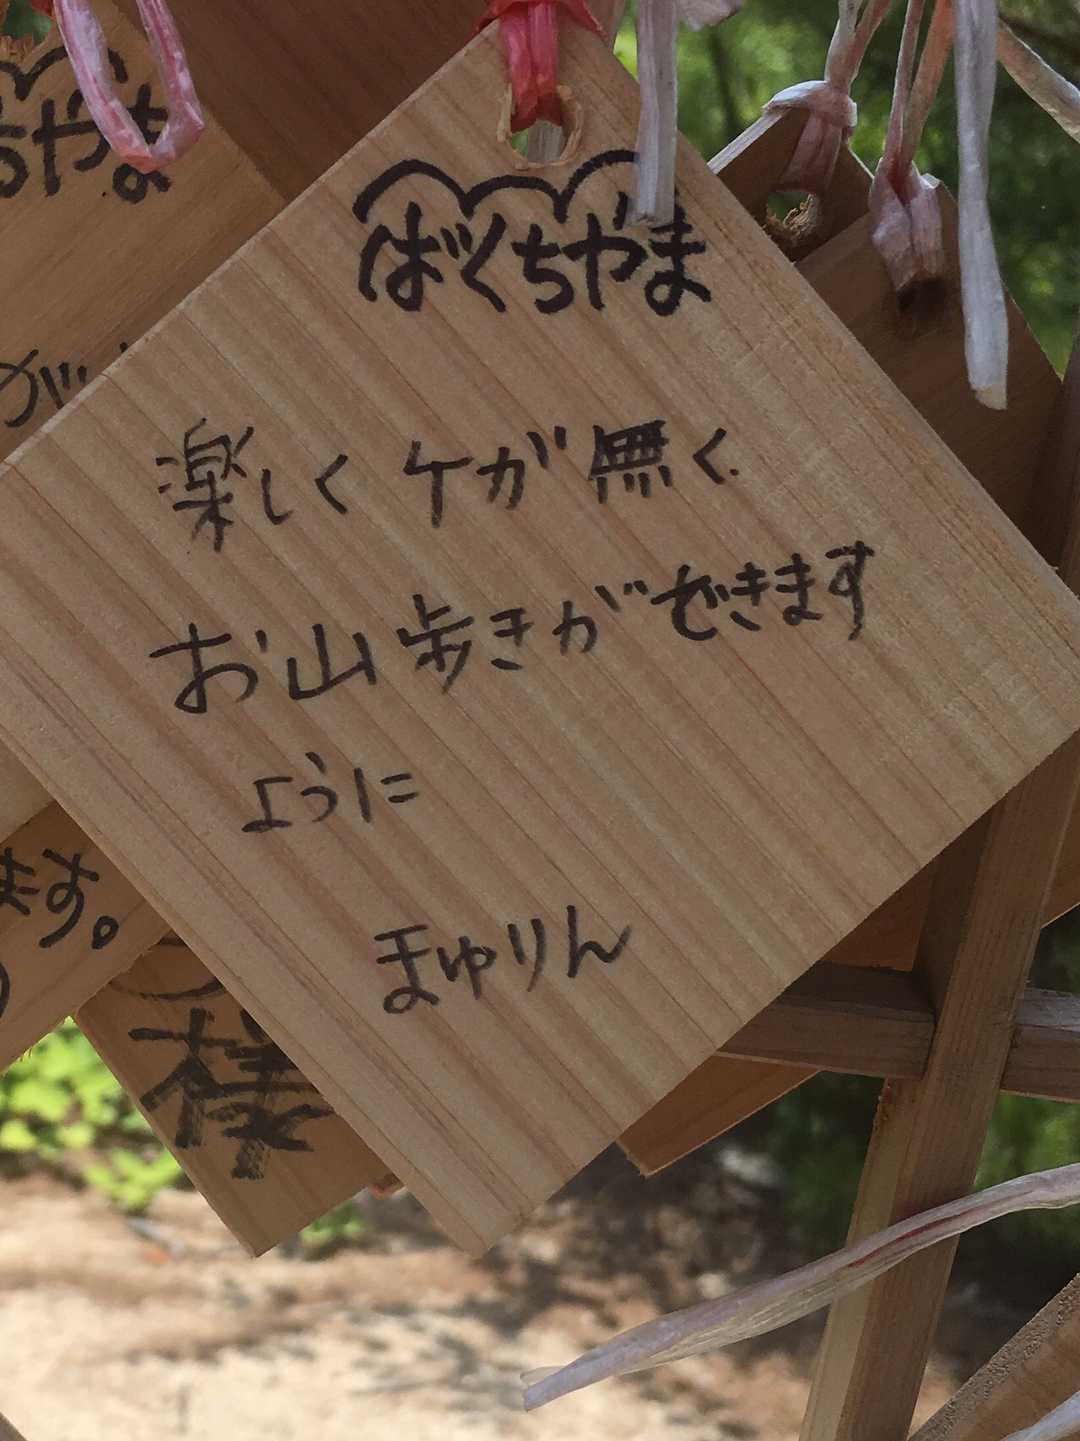 ばくちやま
楽しくケガ無く
お山歩きができます
ように
まゆりん
ちやま
が
ます。
様